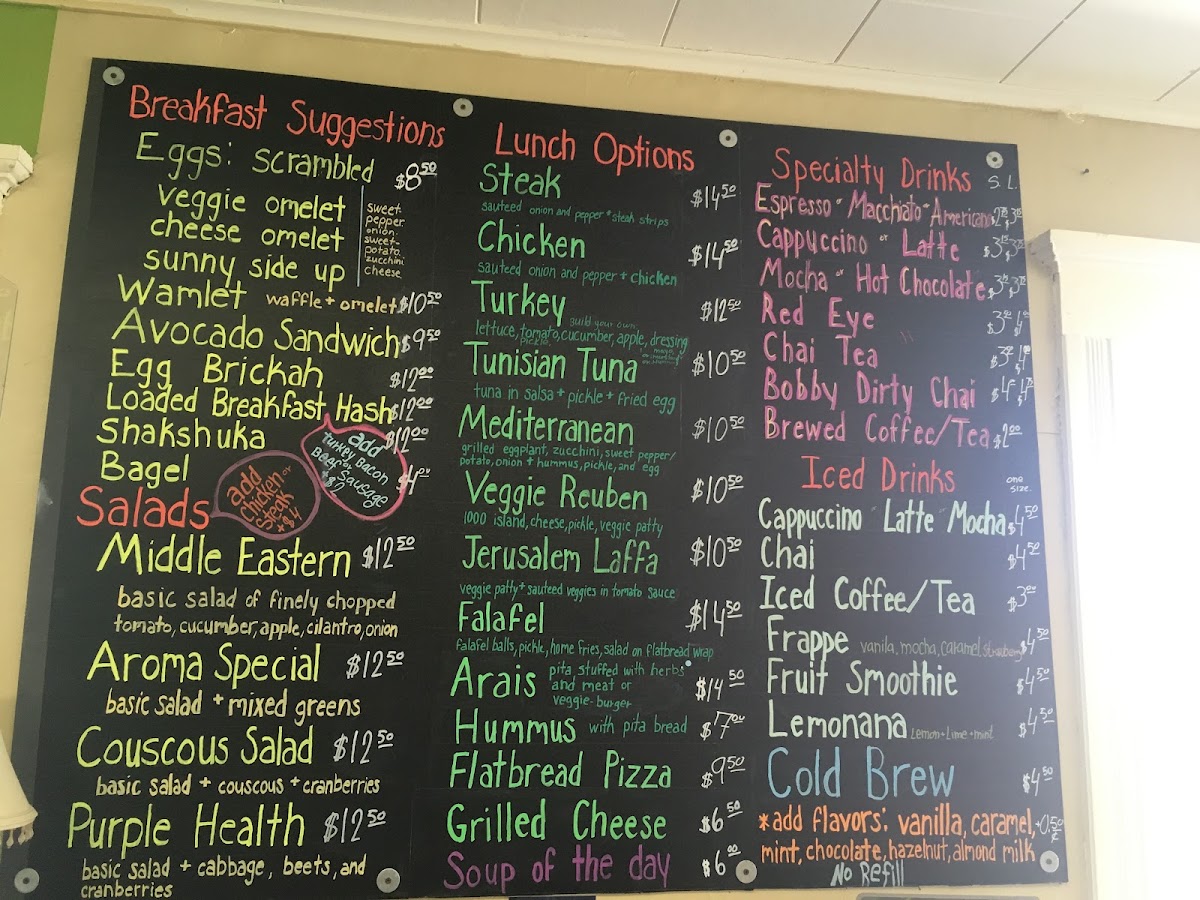 Breakfast Suggestions
Eggs: scrambled $8.50
veggie omelet
cheese omelet
sunny side up
sweet-
pepper
onion
sweet-
potato
zucchini
cheese
Wamlet waffle + omelet $10.50
Avocado Sandwich $9.50
Egg Brickah $12.00
Loaded Breakfast Hash $12.00
Shakshuka $12.00
Bagel $4.00
add
Turkey Bacon
or
Beef Sausage
add
chicken or
steak
+$4
Salads
Middle Eastern $12.50
basic salad of finely chopped
tomato, cucumber, apple, cilantro, onion
Aroma Special $12.50
basic salad + mixed greens
Couscous Salad $12.50
basic salad + couscous + cranberries
Purple Health $12.50
basic salad + cabbage, beets, and
cranberries
Lunch Options
Steak $14.50
sauteed onion and pepper + steak strips
Chicken $14.50
sauteed onion and pepper + chicken
Turkey build your own $12.50
lettuce, tomato, cucumber, apple, dressing
pickle
Tunisian Tuna $10.50
tuna in salsa + pickle + fried egg
Mediterranean $10.50
grilled eggplant, zucchini, sweet pepper/
potato, onion + hummus, pickle, and egg
Veggie Reuben $10.50
1000 island, cheese, pickle, veggie patty
Jerusalem Laffa $10.50
veggie patty + sauteed veggies in tomato sauce
Falafel $14.50
falafel balls, pickle, home fries, salad on flatbread wrap
Arais pita stuffed with herbs $14.50
and meat or
veggie-burger
Hummus with pita bread $7.00
Flatbread Pizza $9.50
Grilled Cheese $6.50
Soup of the day $6.00
Specialty Drinks S. L.
Espresso Macchiato Americano
Cappuccino or Latte
Mocha or Hot Chocolate
Red Eye
Chai Tea
Bobby Dirty Chai
Brewed Coffee/Tea $2.00
Iced Drinks one
size
Cappuccino Latte Mocha $4.50
Chai $4.50
Iced Coffee/Tea $3.00
Frappe vanila, mocha, caramel, strawberry $4.50
Fruit Smoothie $4.50
Lemonana Lemon + Lime + mint $4.50
Cold Brew $4.50
*add flavors: vanilla, caramel, +0.50
mint, chocolate, hazelnut, almond milk
No Refill